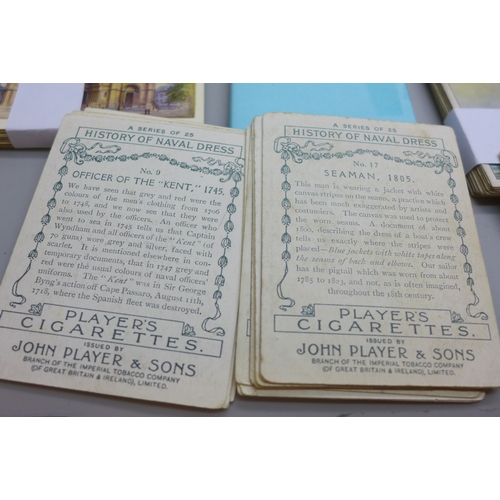 A SERIES OF 25
HISTORY OF NAVAL DRESS
No. 9
OFFICER OF THE "KENT," 1745.
We have seen that grey and red were the
colours of the men's clothing from 1706
to 1748, and we now see that they were
also used by the officers. An officer who
was in town in 1745 tells us that Captain
Wyndham and all officers of the "Kent" (of
70 guns) wore grey and silver, faced with
scarlet. It is mentioned elsewhere in con-
temporary documents, that in 1747 grey and
red were the usual colours of naval officers'
uniforms. The "Kent" was in Sir George
Byng's action off Cape Passaro, August 11th,
1718, where the Spanish fleet was destroyed.
PLAYER'S
CIGARETTES.
ISSUED BY
JOHN PLAYER & SONS
BRANCH OF THE IMPERIAL TOBACCO COMPANY
(OF GREAT BRITAIN & IRELAND), LIMITED.
A SERIES OF 25
HISTORY OF NAVAL DRESS
No. 17
SEAMAN, 1805.
This man is wearing a jacket with white
canvas stripes on the seams, a practice which
has been much exaggerated by artists and
costumiers. The canvas was used to protect
the worn seams. A document of about
1800, describing the dress of a boat's crew
tells us exactly where the stripes were
placed.—Blue jackets with white tapes along
the seams of back and elbows. Our sailor
has the pigtail which was worn from about
1785 to 1823, and not, as is often imagined,
throughout the 18th century.
PLAYER'S
CIGARETTES.
ISSUED BY
JOHN PLAYER & SONS
BRANCH OF THE IMPERIAL TOBACCO COMPANY
(OF GREAT BRITAIN & IRELAND), LIMITED.